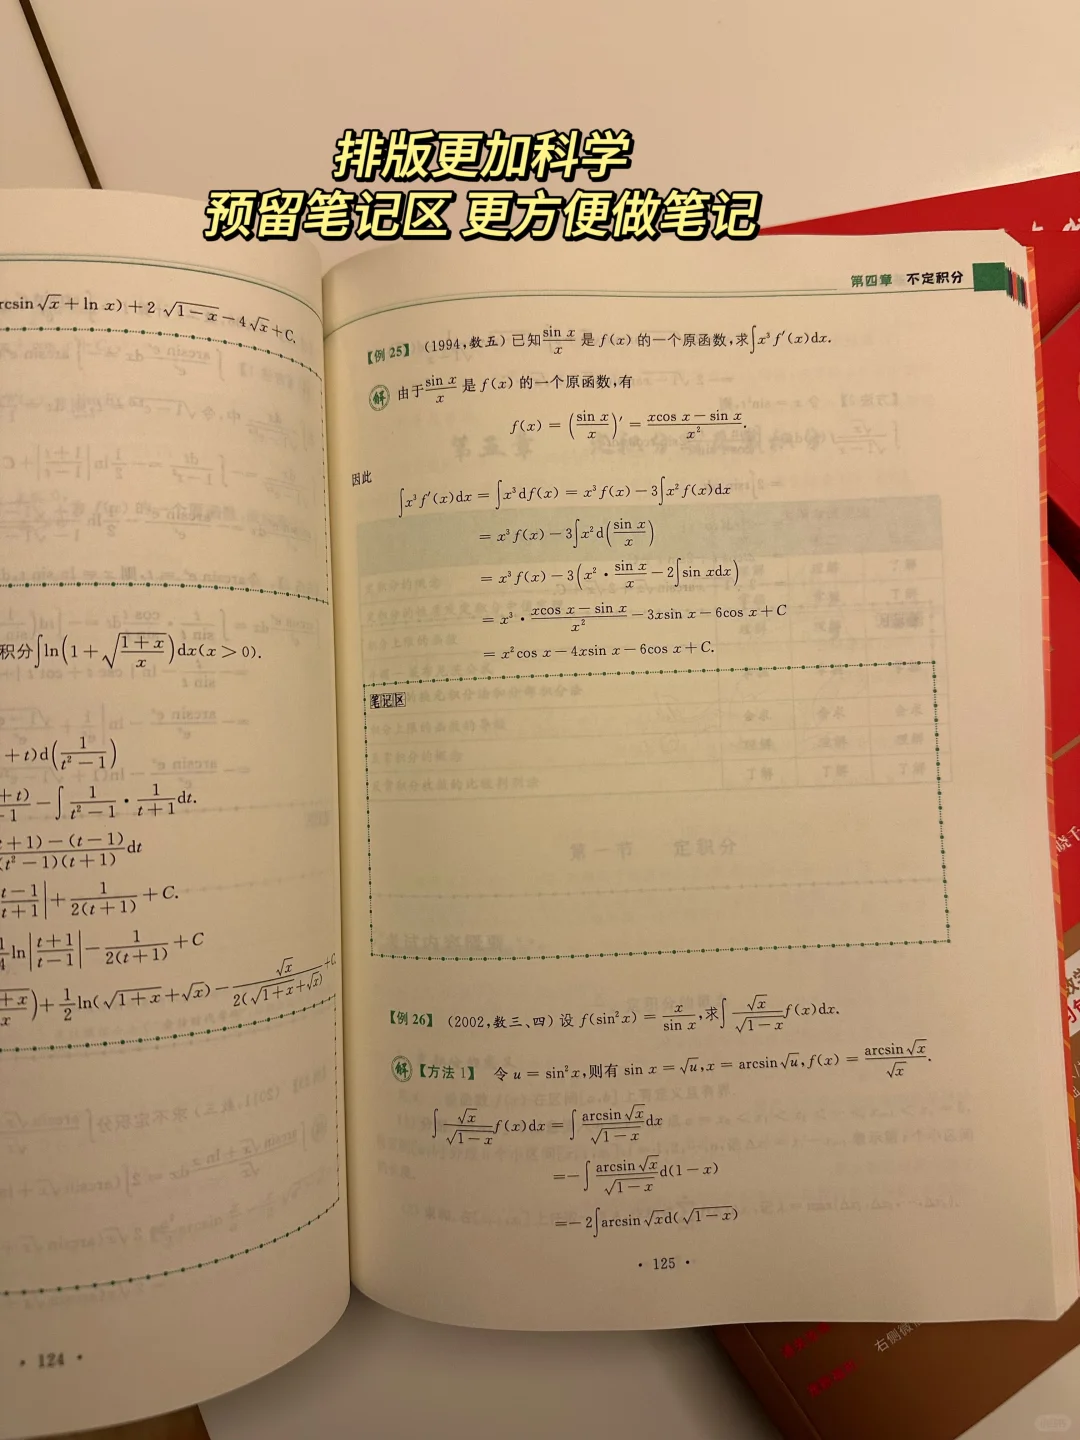 排版更加科学
预留笔记区 更方便做笔记
rcsin √x + ln x) + 2 √(1−x) − 4√x + C.
积分∫ln(1 + √((1+x)/x))dx(x > 0).
+ t)d(1/(t² − 1))
− ∫ 1/(t² − 1) · 1/(t + 1) dt.
+ 1) − (t − 1)
(t² − 1)(t + 1) dt
t − 1
t + 1 | + 1/(2(t + 1)) + C.
ln|(t + 1)/(t − 1)| − 1/(2(t + 1)) + C
+ 1/2 ln(√(1+x) + √x) − √x/(2(√(1+x) + √x)) + C
· 124 ·
第四章 不定积分
【例 25】 (1994,数五) 已知 sin x/x 是 f(x) 的一个原函数,求∫x³f′(x)dx.
解 由于 sin x/x 是 f(x) 的一个原函数,有
f(x) = (sin x/x)′ = (xcos x − sin x)/x².
因此
∫x³f′(x)dx = ∫x³df(x) = x³f(x) − 3∫x²f(x)dx
= x³f(x) − 3∫x²d(sin x/x)
= x³f(x) − 3(x² · sin x/x − 2∫sin xdx)
= x³ · (xcos x − sin x)/x² − 3xsin x − 6cos x + C
= x²cos x − 4xsin x − 6cos x + C.
笔记区
【例 26】 (2002,数三、四) 设 f(sin²x) = x/sin x,求∫ √x/√(1−x) f(x)dx.
解 【方法 1】 令 u = sin²x,则有 sin x = √u,x = arcsin√u,f(x) = arcsin√x/√x.
∫ √x/√(1−x) f(x)dx = ∫ arcsin√x/√(1−x) dx
= −∫ arcsin√x/√(1−x) d(1−x)
= −2∫arcsin√xd(√(1−x))
· 125 ·